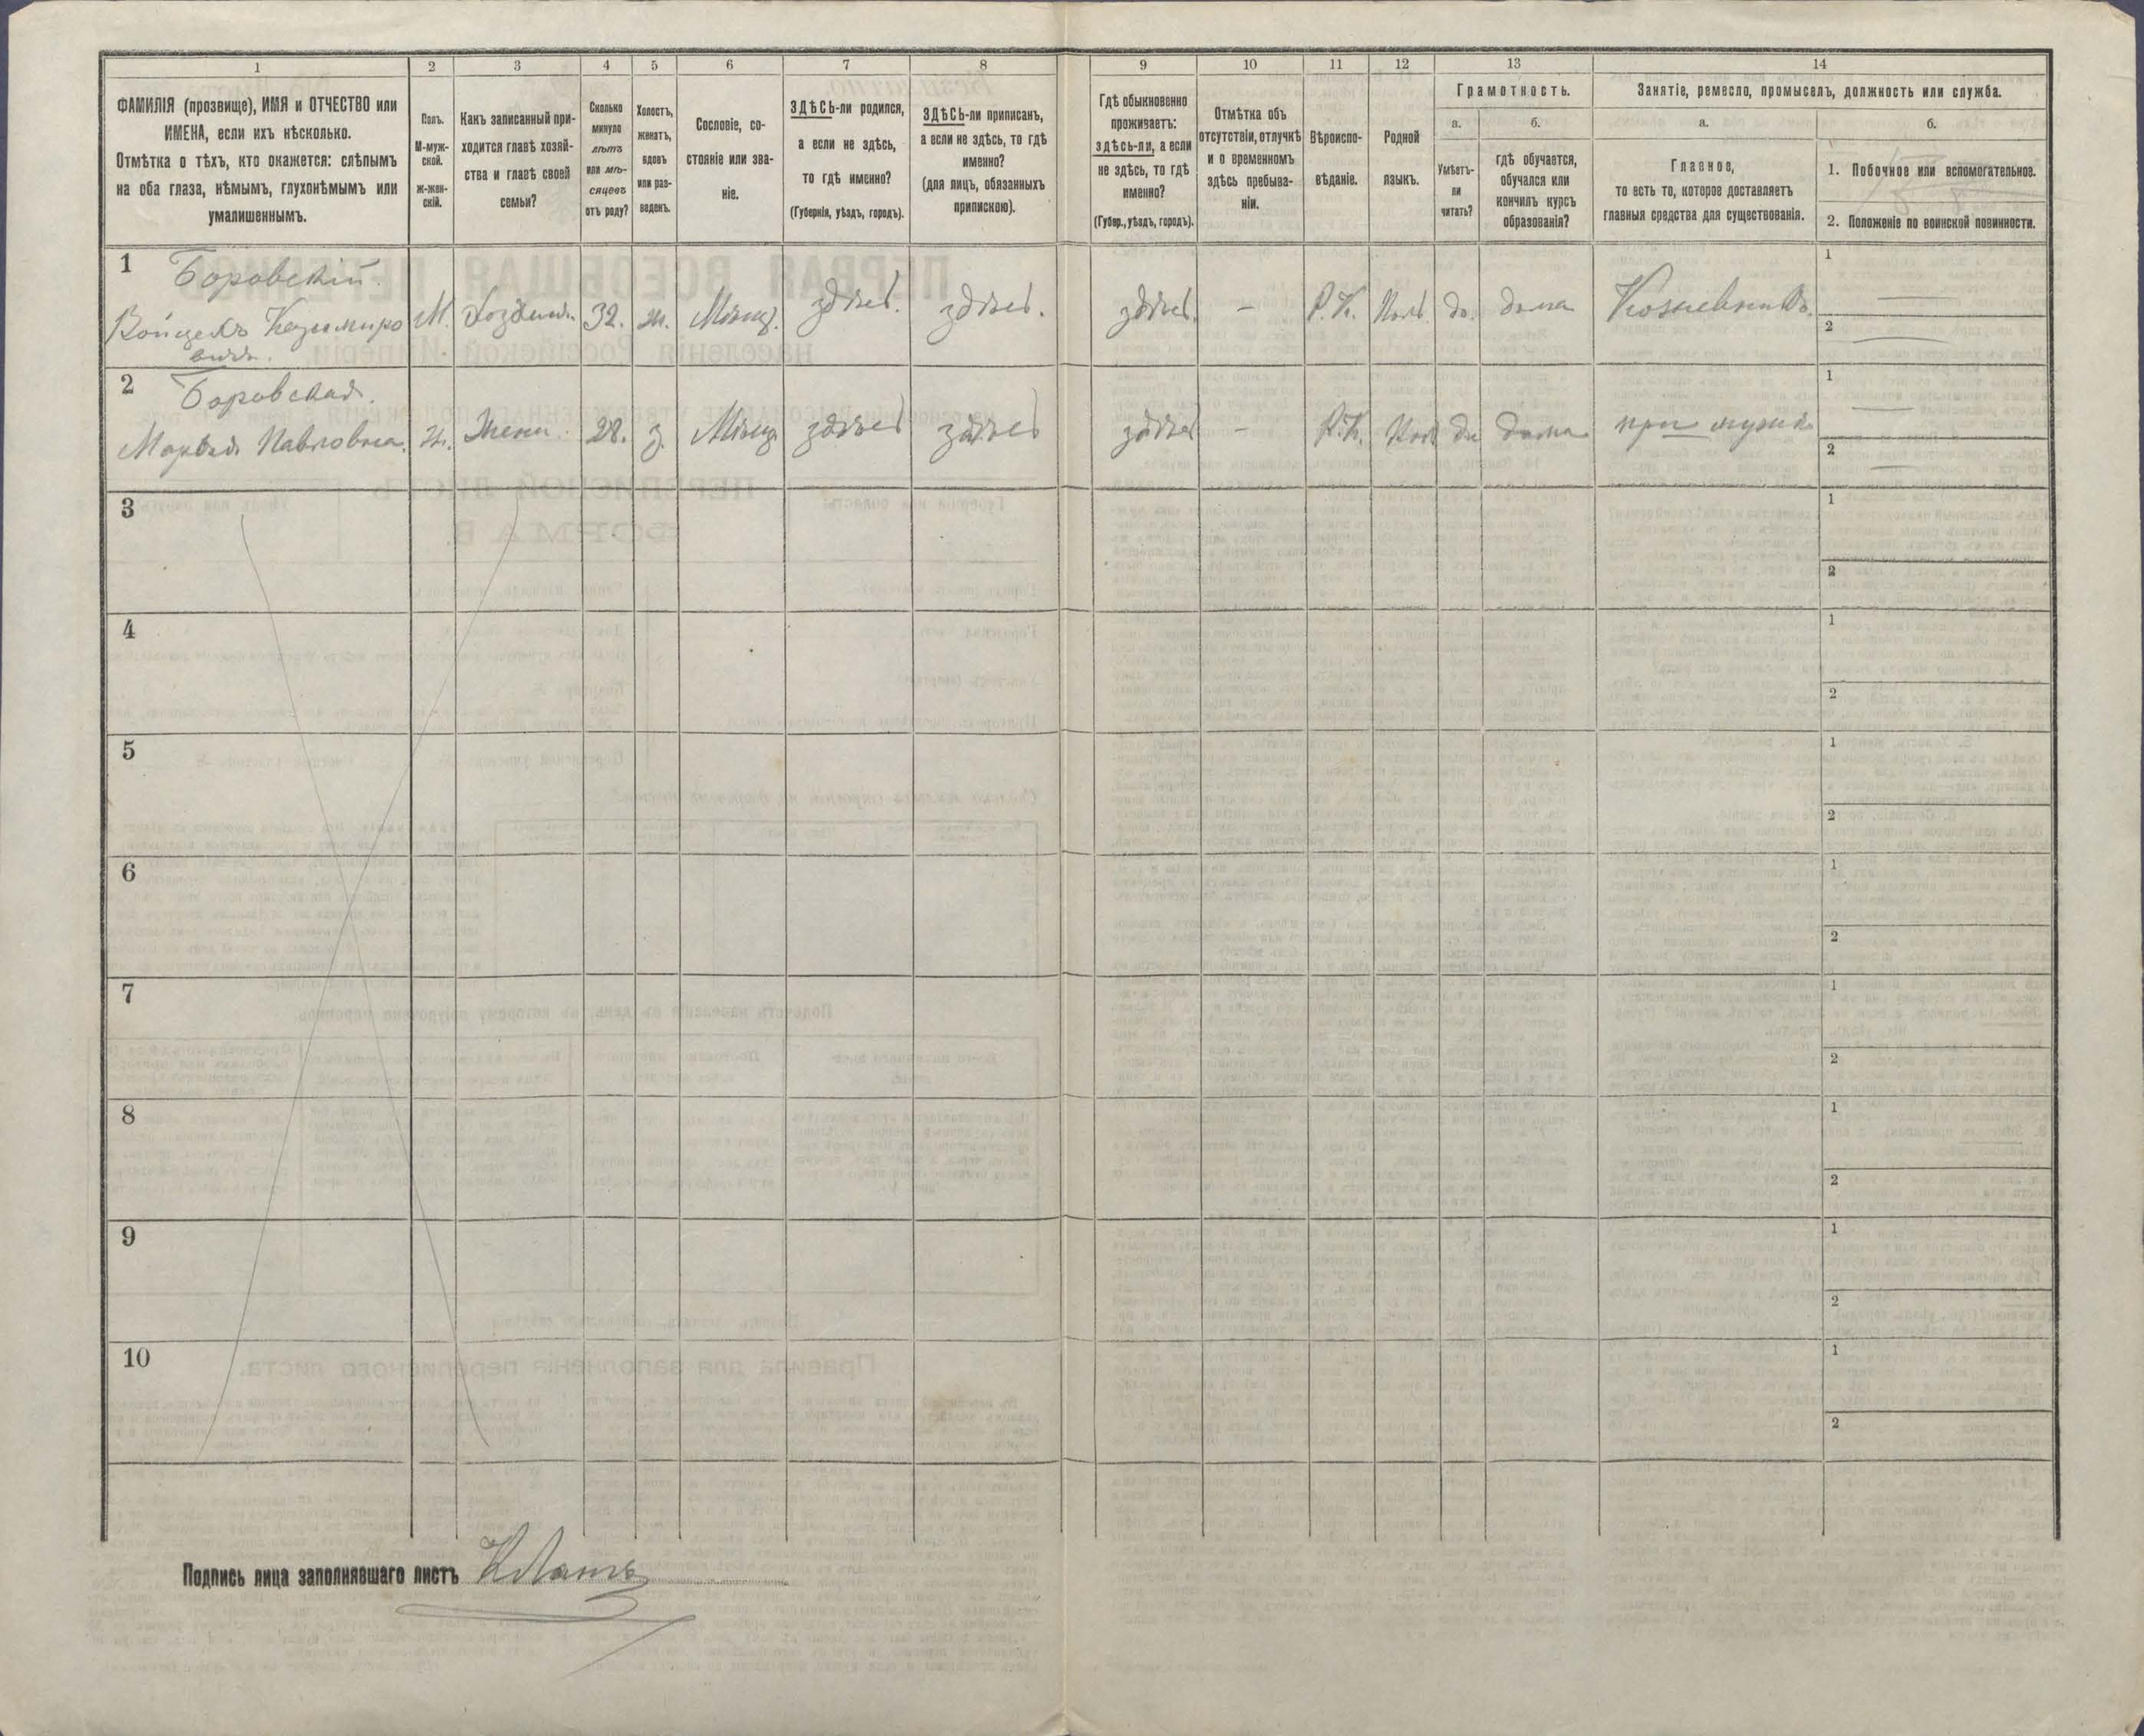 1 2 3 4 5 6 7 8 9 10 11 12 13 14
ФАМИЛІЯ (прозвище), ИМЯ и ОТЧЕСТВО или
ИМЕНА, если ихъ нѣсколько.
Отмѣтка о тѣхъ, кто окажется: слѣпымъ
на оба глаза, нѣмымъ, глухонѣмымъ или
умалишеннымъ.
Полъ.
М-муж-
ской.
ж-жен-
скій.
Какъ записанный при-
ходится главѣ хозяй-
ства и главѣ своей
семьи?
Сколько
минуло
лѣтъ
или мѣ-
сяцевъ
отъ роду?
Холостъ,
женатъ,
вдовъ
или раз-
веденъ.
Сословіе, со-
стояніе или зва-
ніе.
ЗДѢСЬ-ли родился,
а если не здѣсь,
то гдѣ именно?
(Губернія, уѣздъ, городъ).
ЗДѢСЬ-ли приписанъ,
а если не здѣсь, то гдѣ
именно?
(для лицъ, обязанныхъ
припискою).
Гдѣ обыкновенно
проживаетъ:
здѣсь-ли, а если
не здѣсь, то гдѣ
именно?
(Губер., уѣздъ, городъ).
Отмѣтка объ
отсутствіи, отлучкѣ
и о временномъ
здѣсь пребыва-
ніи.
Вѣроиспо-
вѣданіе.
Родной
языкъ.
Грамотность.
а.
Умѣетъ-
ли
читать?
б.
гдѣ обучается,
обучался или
кончилъ курсъ
образованія?
Занятіе, ремесло, промыселъ, должность или служба.
а.
Главное,
то есть то, которое доставляетъ
главныя средства для существованія.
б.
1. Побочное или вспомогательное.
2. Положеніе по воинской повинности.
1 Боровскій.
Войцехъ Казимиро
вичъ. М. 32. ж. Мѣщ. здѣсь. здѣсь. здѣсь. - Р.К. Пол. да. дома
1
2
2 Боровская.
Павловна. ж. Жена. 28. з. Мѣщ. здѣсь здѣсь здѣсь - Р.К. Пол. да дома при мужѣ
1
2
3
1
2
4
1
2
5
1
2
6
1
2
7
1
2
8
1
2
9
1
2
10
1
2
Подпись лица заполнявшаго листъ